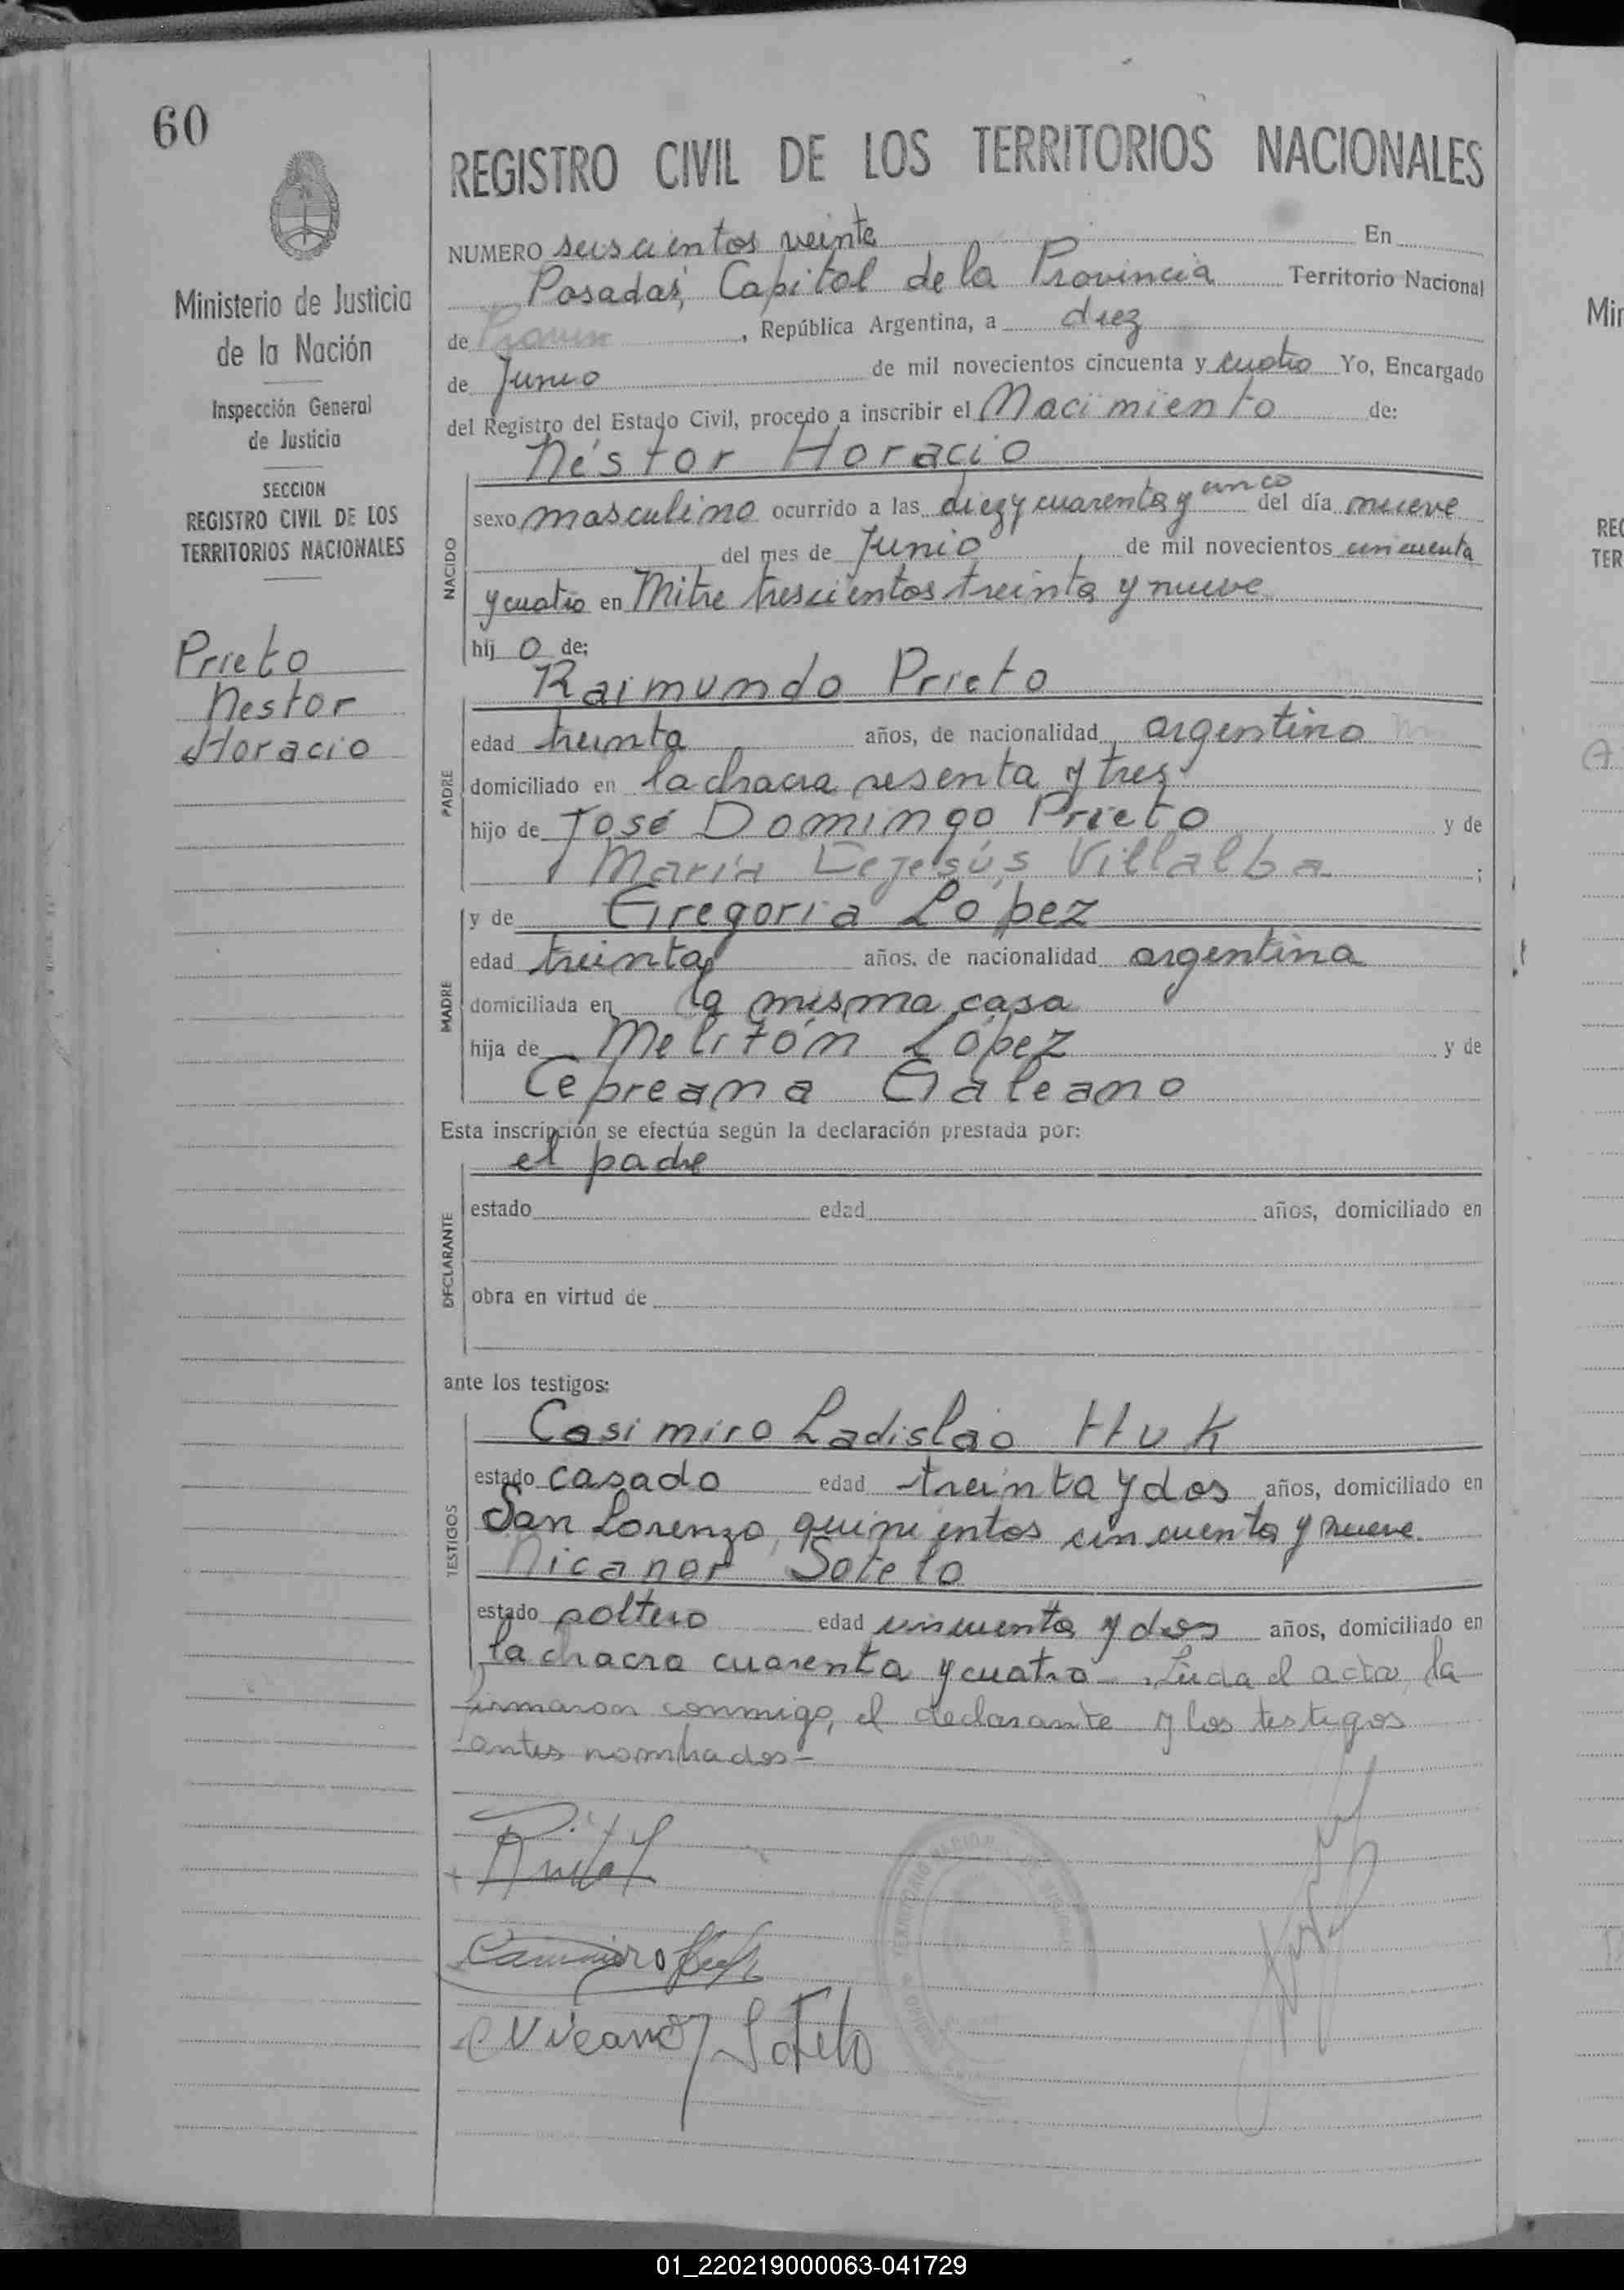 60
REGISTRO CIVIL DE LOS TERRITORIOS NACIONALES
Ministerio de Justicia
de la Nación
Inspección General
de Justicia
SECCION
REGISTRO CIVIL DE LOS
TERRITORIOS NACIONALES
Prieto
Nestor
Horacio
NUMERO seiscientos veinte En
Posadas, Capital de la Provincia Territorio Nacional
de , República Argentina, a diez
de Junio de mil novecientos cincuenta y cuatro Yo, Encargado
del Registro del Estado Civil, procedo a inscribir el Nacimiento de:
Néstor Horacio
NACIDO
sexo masculino ocurrido a las diez y cuarenta y cinco del día nueve
del mes de Junio de mil novecientos cincuenta
y cuatro en Mitre trescientos treinta y nueve
hij o de;
Raimundo Prieto
PADRE
edad treinta años, de nacionalidad argentino
domiciliado en la chacra sesenta y tres
hijo de José Domingo Prieto y de
María Dejesús Villalba ;
y de Gregoria López
MADRE
edad treinta años, de nacionalidad argentina
domiciliada en la misma casa
hija de Melitón López y de
Cepreana Galeano
Esta inscripción se efectúa según la declaración prestada por:
el padre
DECLARANTE
estado edad años, domiciliado en
obra en virtud de
ante los testigos:
Casimiro Ladislao Huk
TESTIGOS
estado casado edad treinta y dos años, domiciliado en
San Lorenzo, quinientos cincuenta y nueve
Nicanor Sotelo
estado soltero edad cincuenta y dos años, domiciliado en
la chacra cuarenta y cuatro - Leída el acta, la
firmaron conmigo, el declarante y los testigos
antes nombrados-
Casimiro Huk
Nicanor Sotelo
Min
REG
TER
01_220219000063-041729